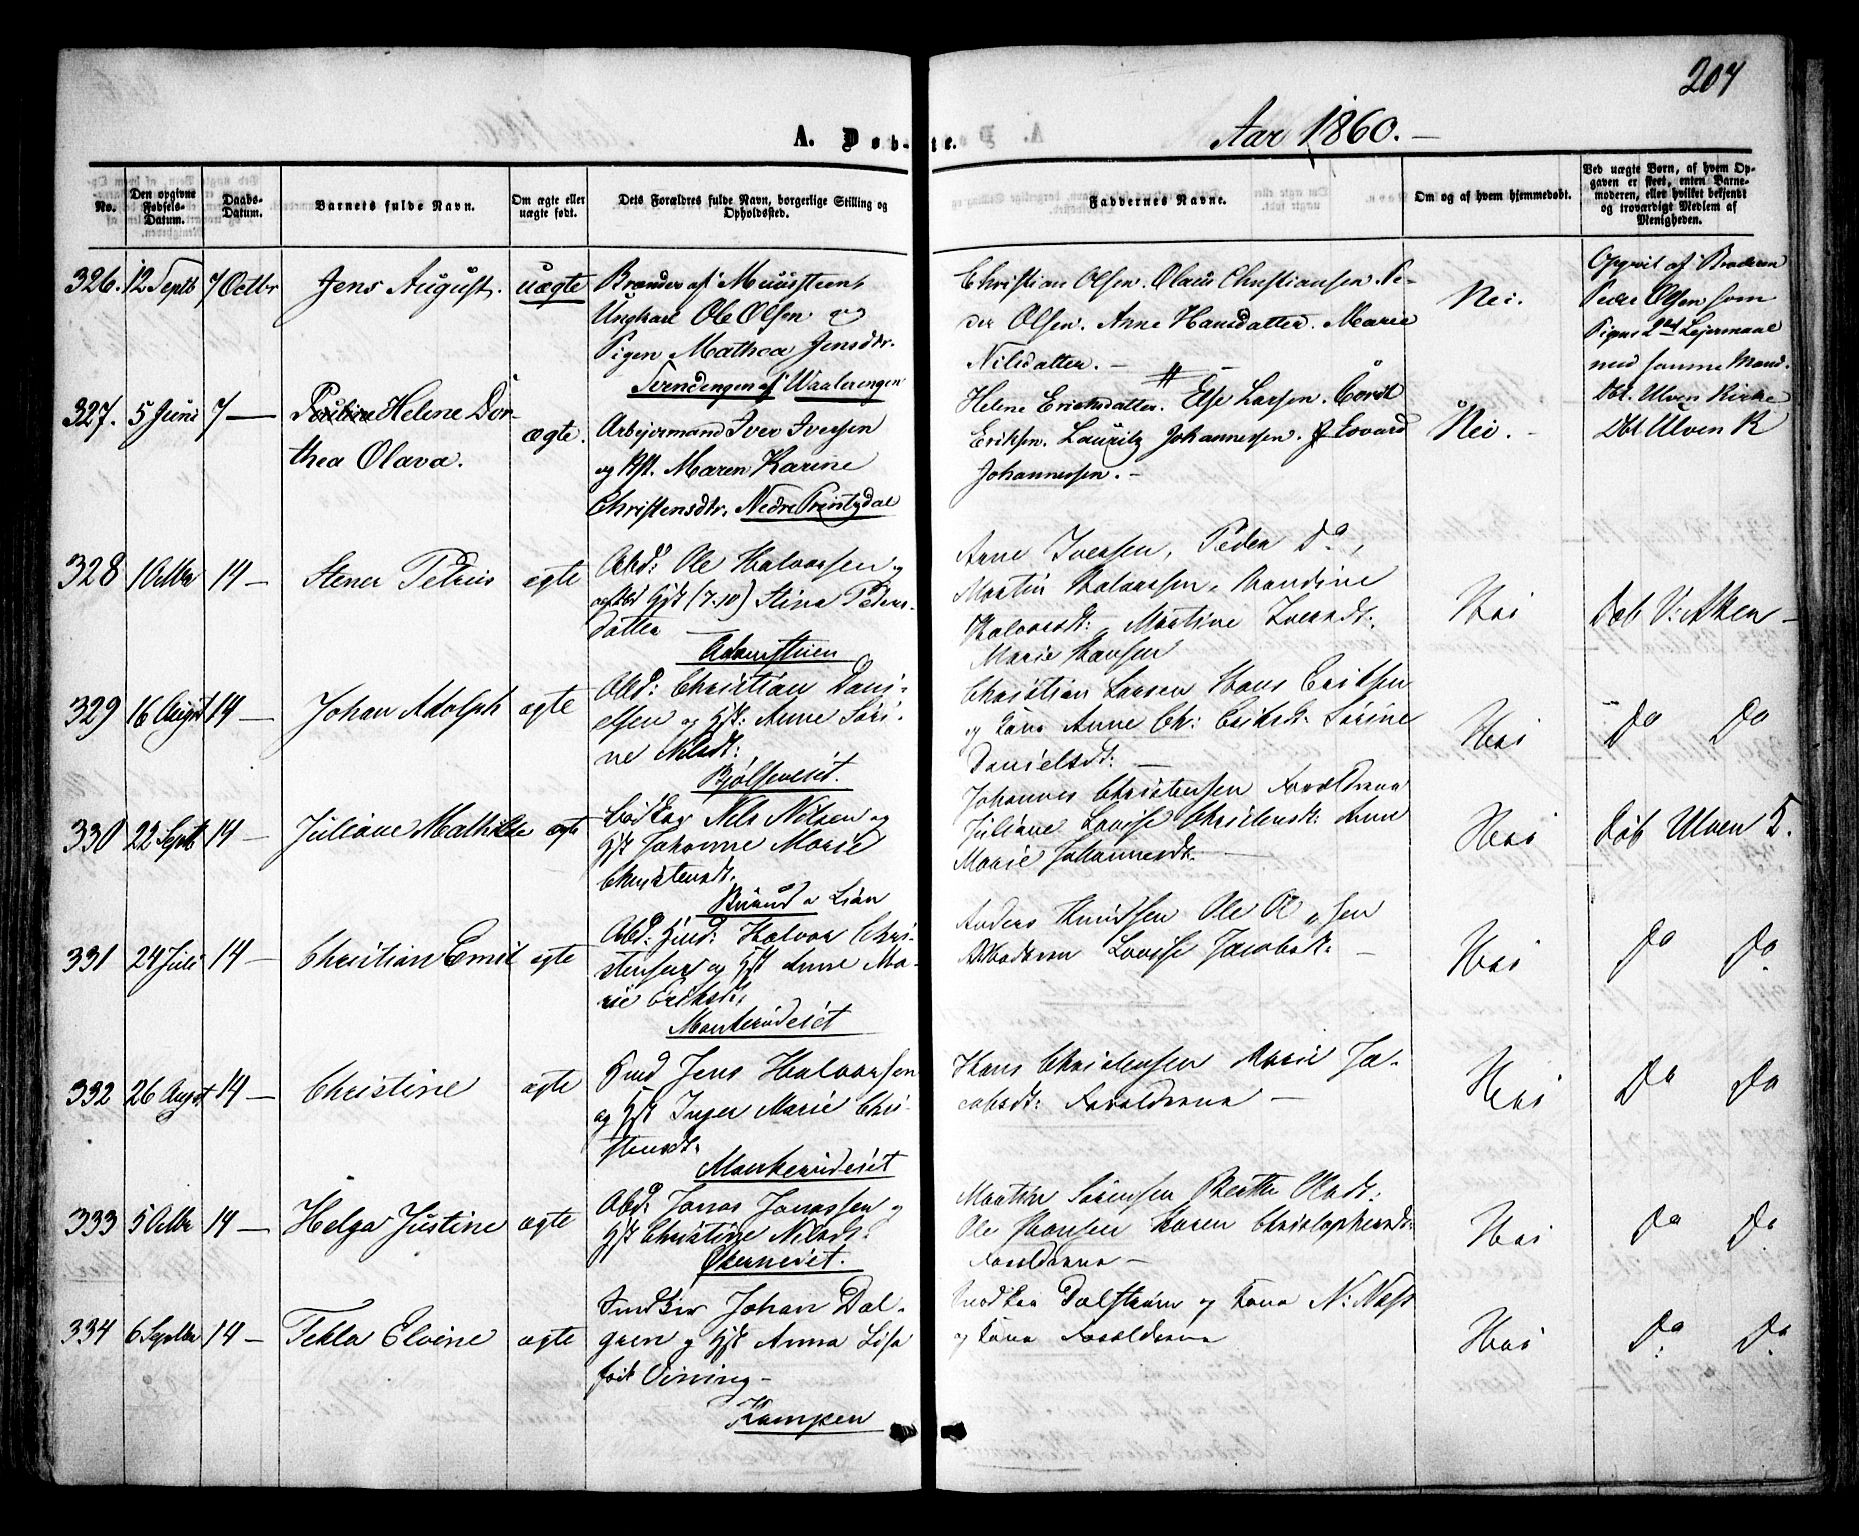 204
A. Døb-
te.
Aar 1860. —
No.
Den opgivne Fødsels-Datum.
Daabs-Datum.
Barnets fulde Navn.
Om ægte eller uægte født.
Dets Forældres fulde Navn, borgerlige Stilling og Opholdssted.
Faddernes Navne.
Om og af hvem hjemmedøbt.
Ved uægte Børn, af hvem Opgaven er skeet, enten Barnemoderen, eller hvilket bekjendt og troværdigt Medlem af Menigheden.
326. 12 Septb 7 Octbr Jens August. uægte
Ungkarl Ole Olsen og
Pigen Mathea Jensdtr.
Waalerengen
Christian Olsen. Olaus Christiansen. Pe-
der Olsen. Anne Hansdatter. Marie
Nilsdatter. —
Nei.
Opgivet af Broderen
Peder Olsen som
Pigens 2det Leiermaal
med samme Mand.
Dbt. Ulven Kirke
327. 5 Juni 7 — Helene Dor-
thea Olava. ægte.
Arbejdermand Iver Iversen
og Hst. Maren Karine
Christensdtr. Nedre
Helene Ericksdatter. Else Larsen. Cordt
Eriksen. Lauritz Johannessen. Edvard
Johannessen. —
Nei. —
Dbt Ulven K
328 1 Octbr 14 — Stener Petrus ægte
Arbd: Ole Halvorsen og
Hst (7:10) Stina Peders-
datter —
Adamstuen
Anne Iversen, Peder Do,
Martin Halvorsen,
Halvorsdt: Martine Iversdt:
Marie Hansen
Nei
Døb V: Aker —
329 16 August 14 — Johan Adolph ægte
Abd: Christian Dani-
elsen og Hst: Anne Sori-
ne Nilsdt:
Bjølseneiet.
Christian Larsen Hans Eriksen
og Kone Anne Ch: Eriksdt: Sorine
Danielsdt: —
Nei
Do Do
330 22 Septb 14 — Juliane Mathilde ægte
Bødker Nils Nilsen og
Hst Johanne Marie
Christensdt.
Lian
Johannes Christensen Forældrene
Juliane Lovise Christensdt: Anne
Marie Johannesdt. —
Nei
Døb Ulven K.
331 24 Juli 14 — Christian Emil ægte
Abd: Halvor Chri-
stensen og Hst Anne Ma-
rie Eriksdt:
Manherudeiet
Anders Knudsen Ole Ol„sen
Moderen Lovise Jacobsdt: —
Nei
Do Do
332 26 August 14 — Christine ægte
Jens Halvorsen
og Hst Inger Marie Chri-
stensdt:
Manherudeiet
Hans Christensen Marie Ja-
cobsdt: Forældrene —
Nei
Do Do
333 5 Octbr 14 — Helga Justine ægte
Abd: Jonas Jonassen og
Hst Christine Nilsdt:
Økerneiet.
Martin Sørensen Berthe Olsdt:
Ole Hansen Karen Christophersdt:
Forældrene —
Nei
Do Do
334 6 Septbr 14 — Tekla Elvine ægte
Snedker Johan Dal-
gren og Hst Anna Lisa
født Vining —
Kampen
Snedker Dalstrøm og Kone N: Næss
og Kone Forældrene
Nei
Do Do